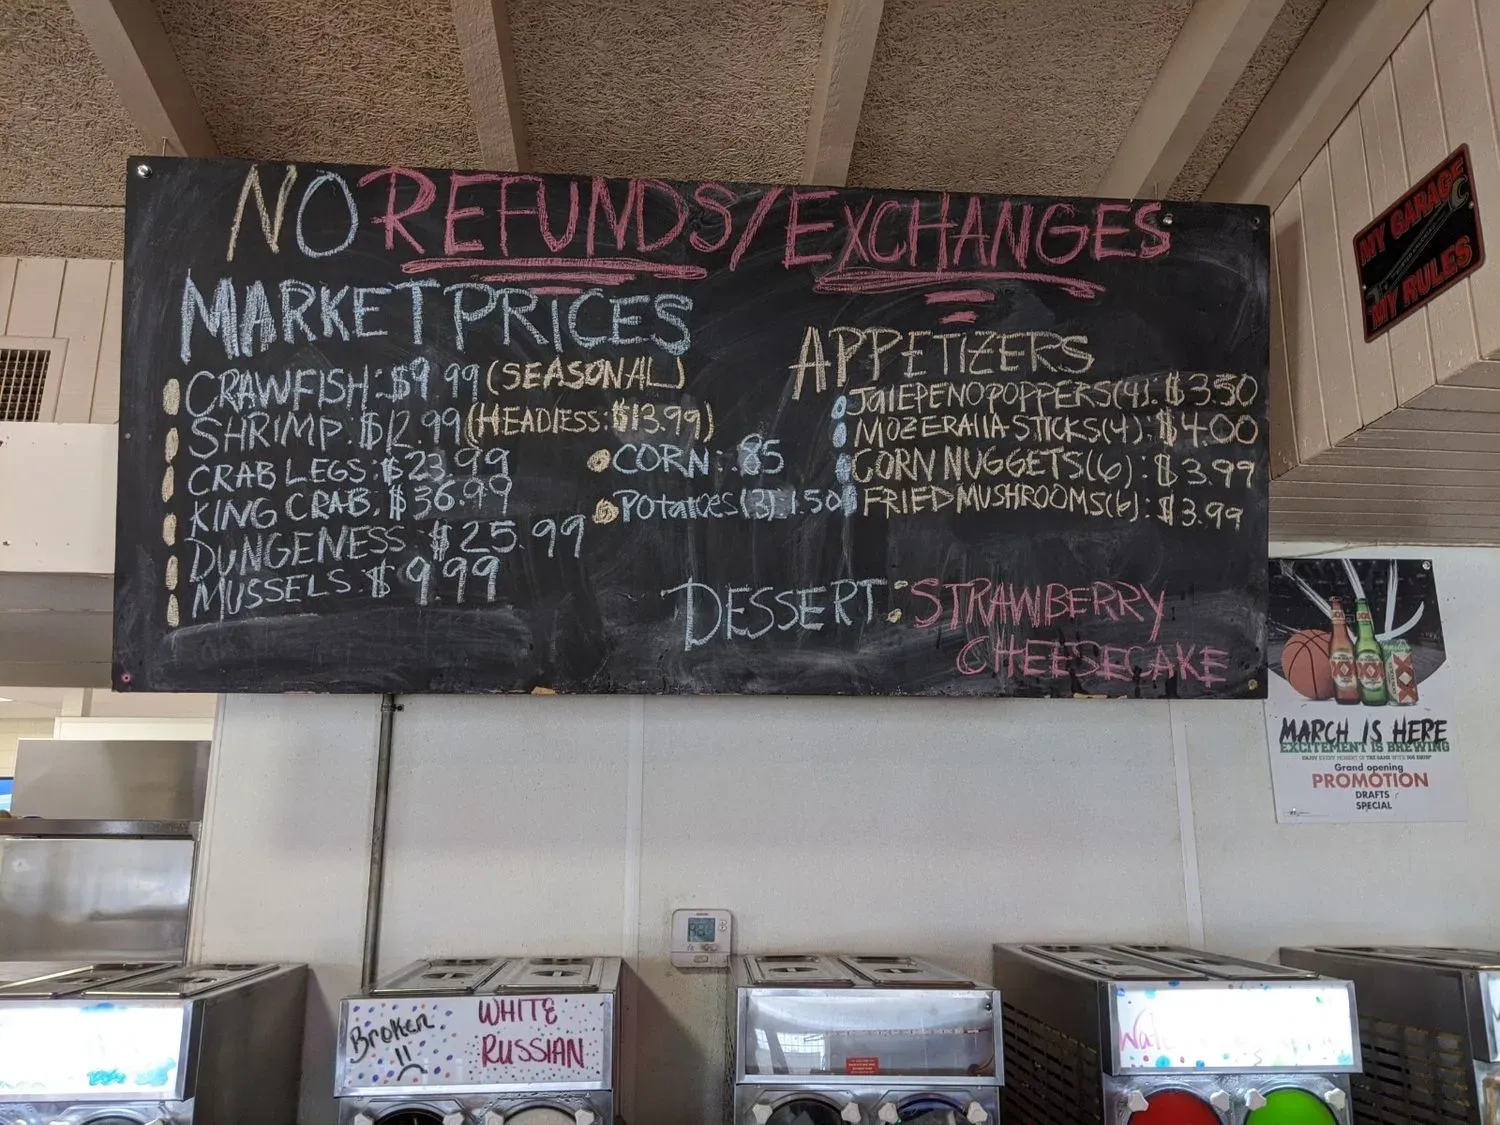 NO REFUNDS/EXCHANGES
MARKET PRICES
CRAWFISH: $9.99 (SEASONAL)
SHRIMP: $12.99 (HEADLESS: $13.99)
CRAB LEGS: $23.99
KING CRAB: $36.99
DUNGENESS: $25.99
MUSSELS: $9.99
CORN: .85
Potatoes (3): 1.50
APPETIZERS
JalEPENO POPPERS (4): $3.50
MOZERAllA STICKS (4): $4.00
CORN NUGGETS (6): $3.99
FRIED MUSHROOMS (6): $3.99
DESSERT: STRAWBERRY
CHEESECAKE
MY GARAGE
MY RULES
MARCH IS HERE
EXCITEMENT IS BREWING
Grand opening
PROMOTION
DRAFTS
SPECIAL
Broken
!!
WHITE
RUSSIAN